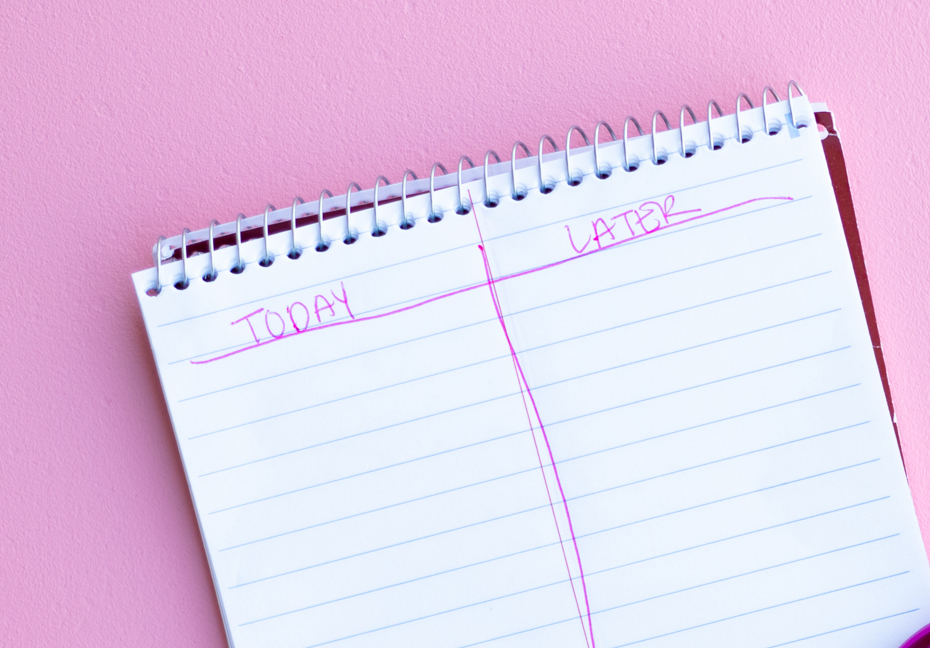 TODAY
LATER